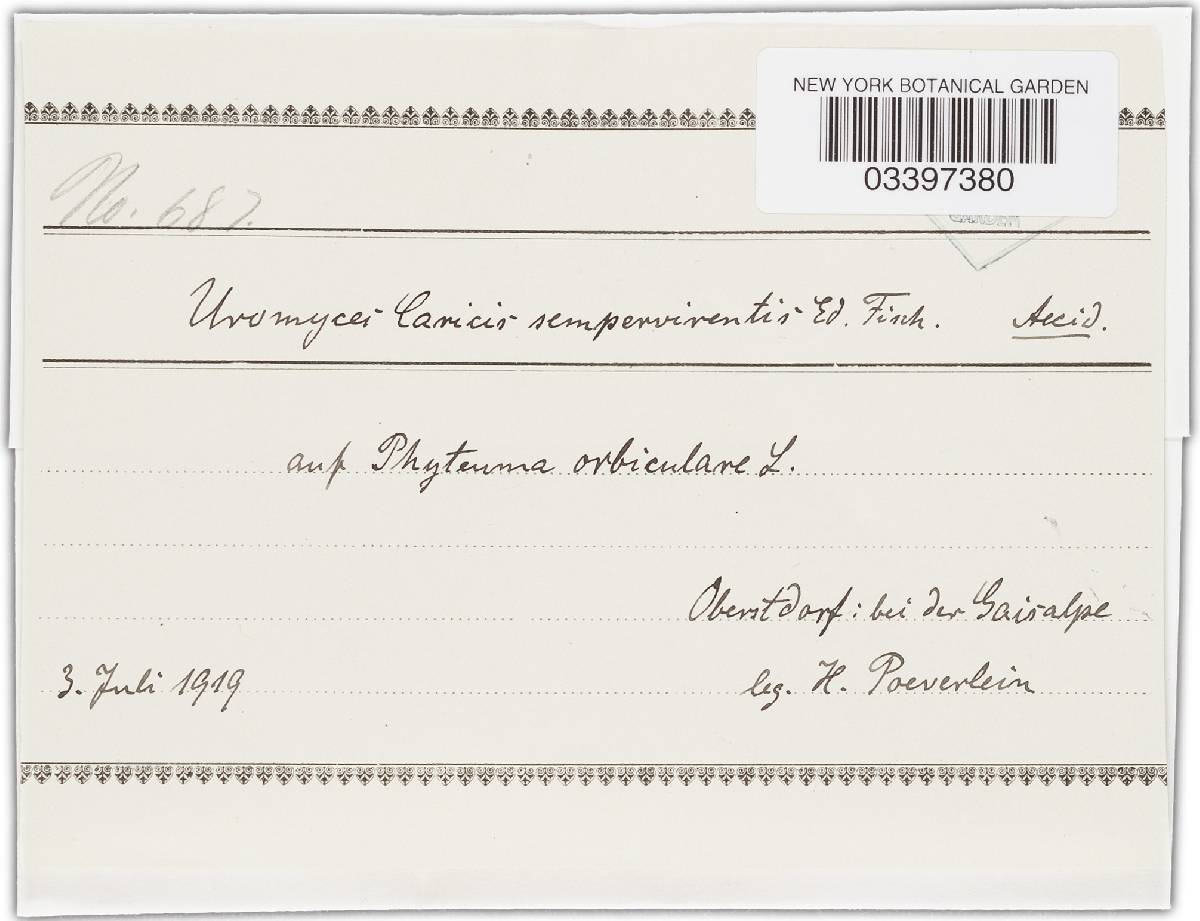 NEW YORK BOTANICAL GARDEN
03397380
GARDEN
No. 687.
Uromyces Caricis sempervirentis Ed. Fisch. Aecid.
auf Phyteuma orbiculare L.
Oberstdorf: bei der Gaisalpe
3. Juli 1919 leg. H. Poeverlein